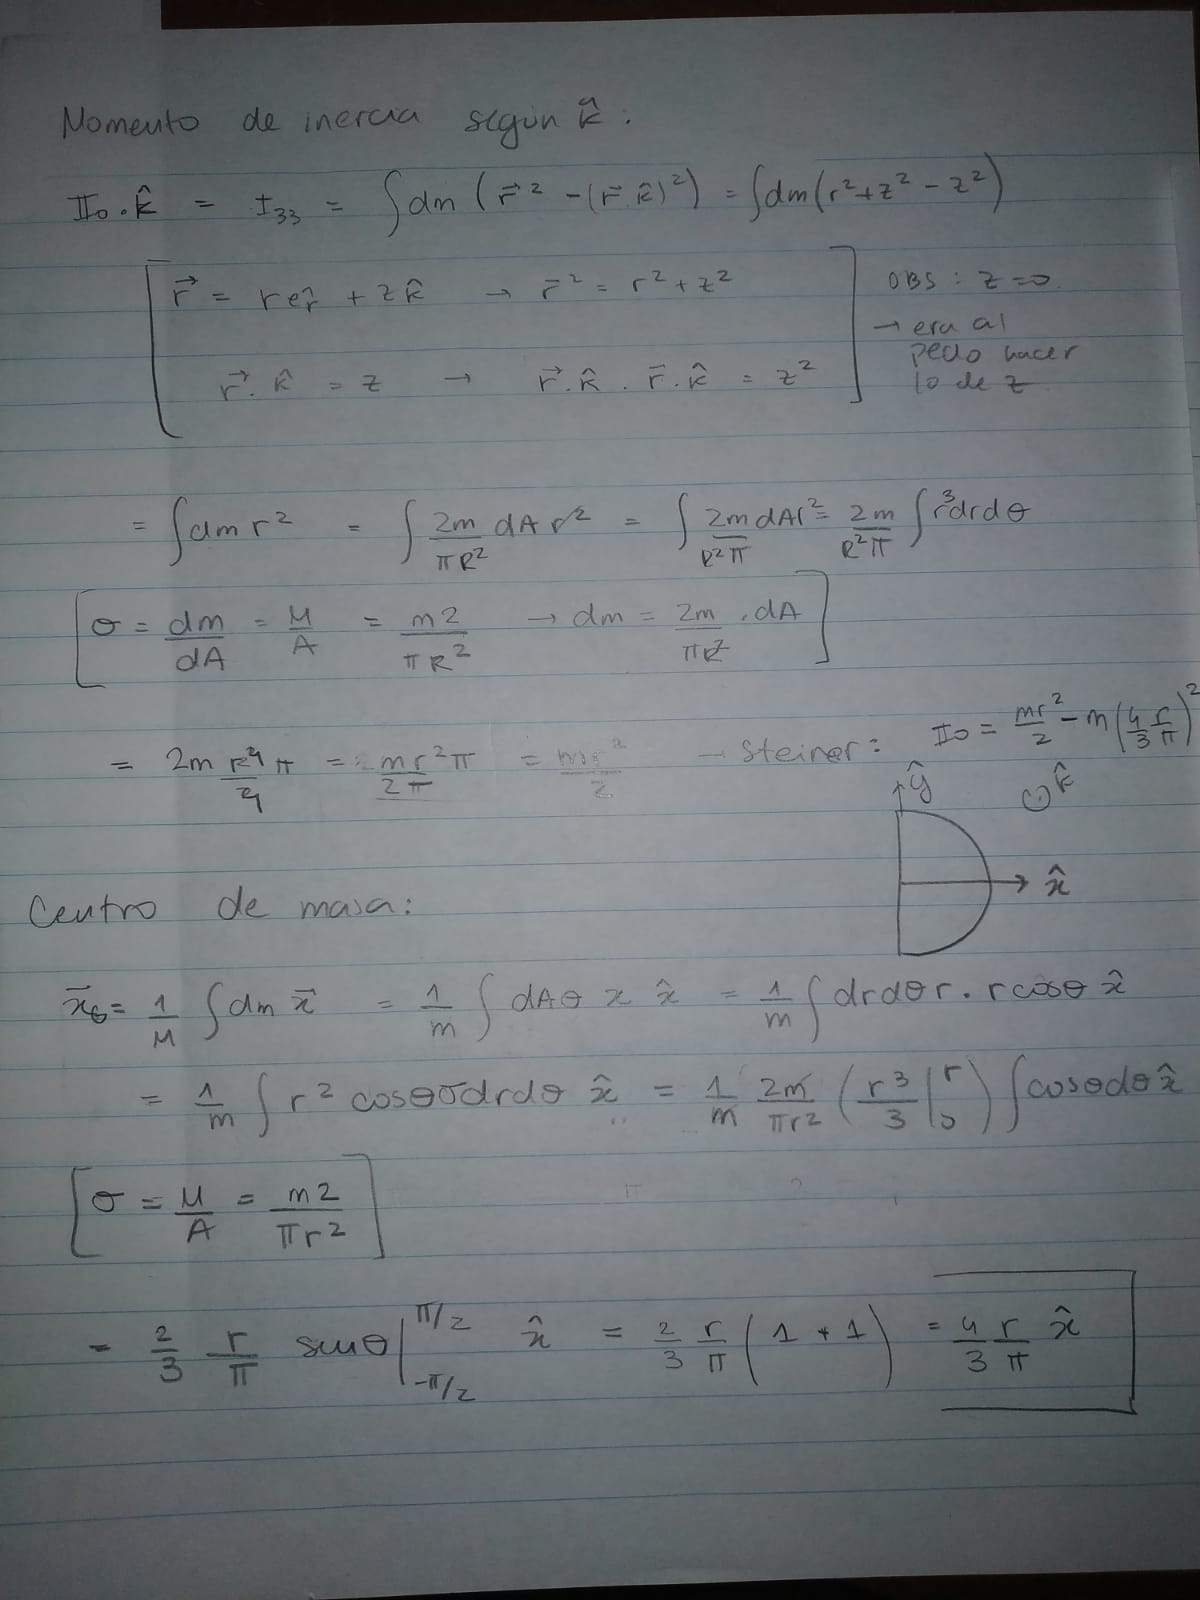 Momento de inercia según k̂ :
II₀.k̂ = I₃₃ = ∫dm (r⃗ ² - (r⃗. k̂)²) = ∫dm(r²+z² - z²)
r⃗ = r êr + z k̂ → r̄ ² = r² + z²
OBS : z=0.
→ era al
pedo hacer
lo de z
r⃗. k̂ = z → r⃗. k̂ . r̄. k̂ = z²
= ∫dm r² = ∫ 2m/πR² dA r² = ∫ 2m/R²π dA r² = 2m/R²π ∫ r³drdθ
[σ = dm/dA = M/A = m2/πR² → dm = 2m/πR² . dA]
= 2m R⁴/4 π = mr²π/2π = mr²/2 → Steiner : II₀ = mr²/2 - m(4/3 r/π)²
ŷ
k̂
x̂
Centro de masa:
x̄G = 1/M ∫dm x̄ = 1/m ∫ dAσ x x̂ = 1/m ∫ drdθ r. r cosθ x̂
= 1/m ∫ r² cosθ σ drdθ x̂ = 1/m 2m/πr² (r³/3 |r 0) ∫cosθdθ x̂
[σ = M/A = m2/πr²]
= 2/3 r/π senθ |π/2 -π/2 x̂ = 2/3 r/π (1 + 1) = 4/3 r/π x̂